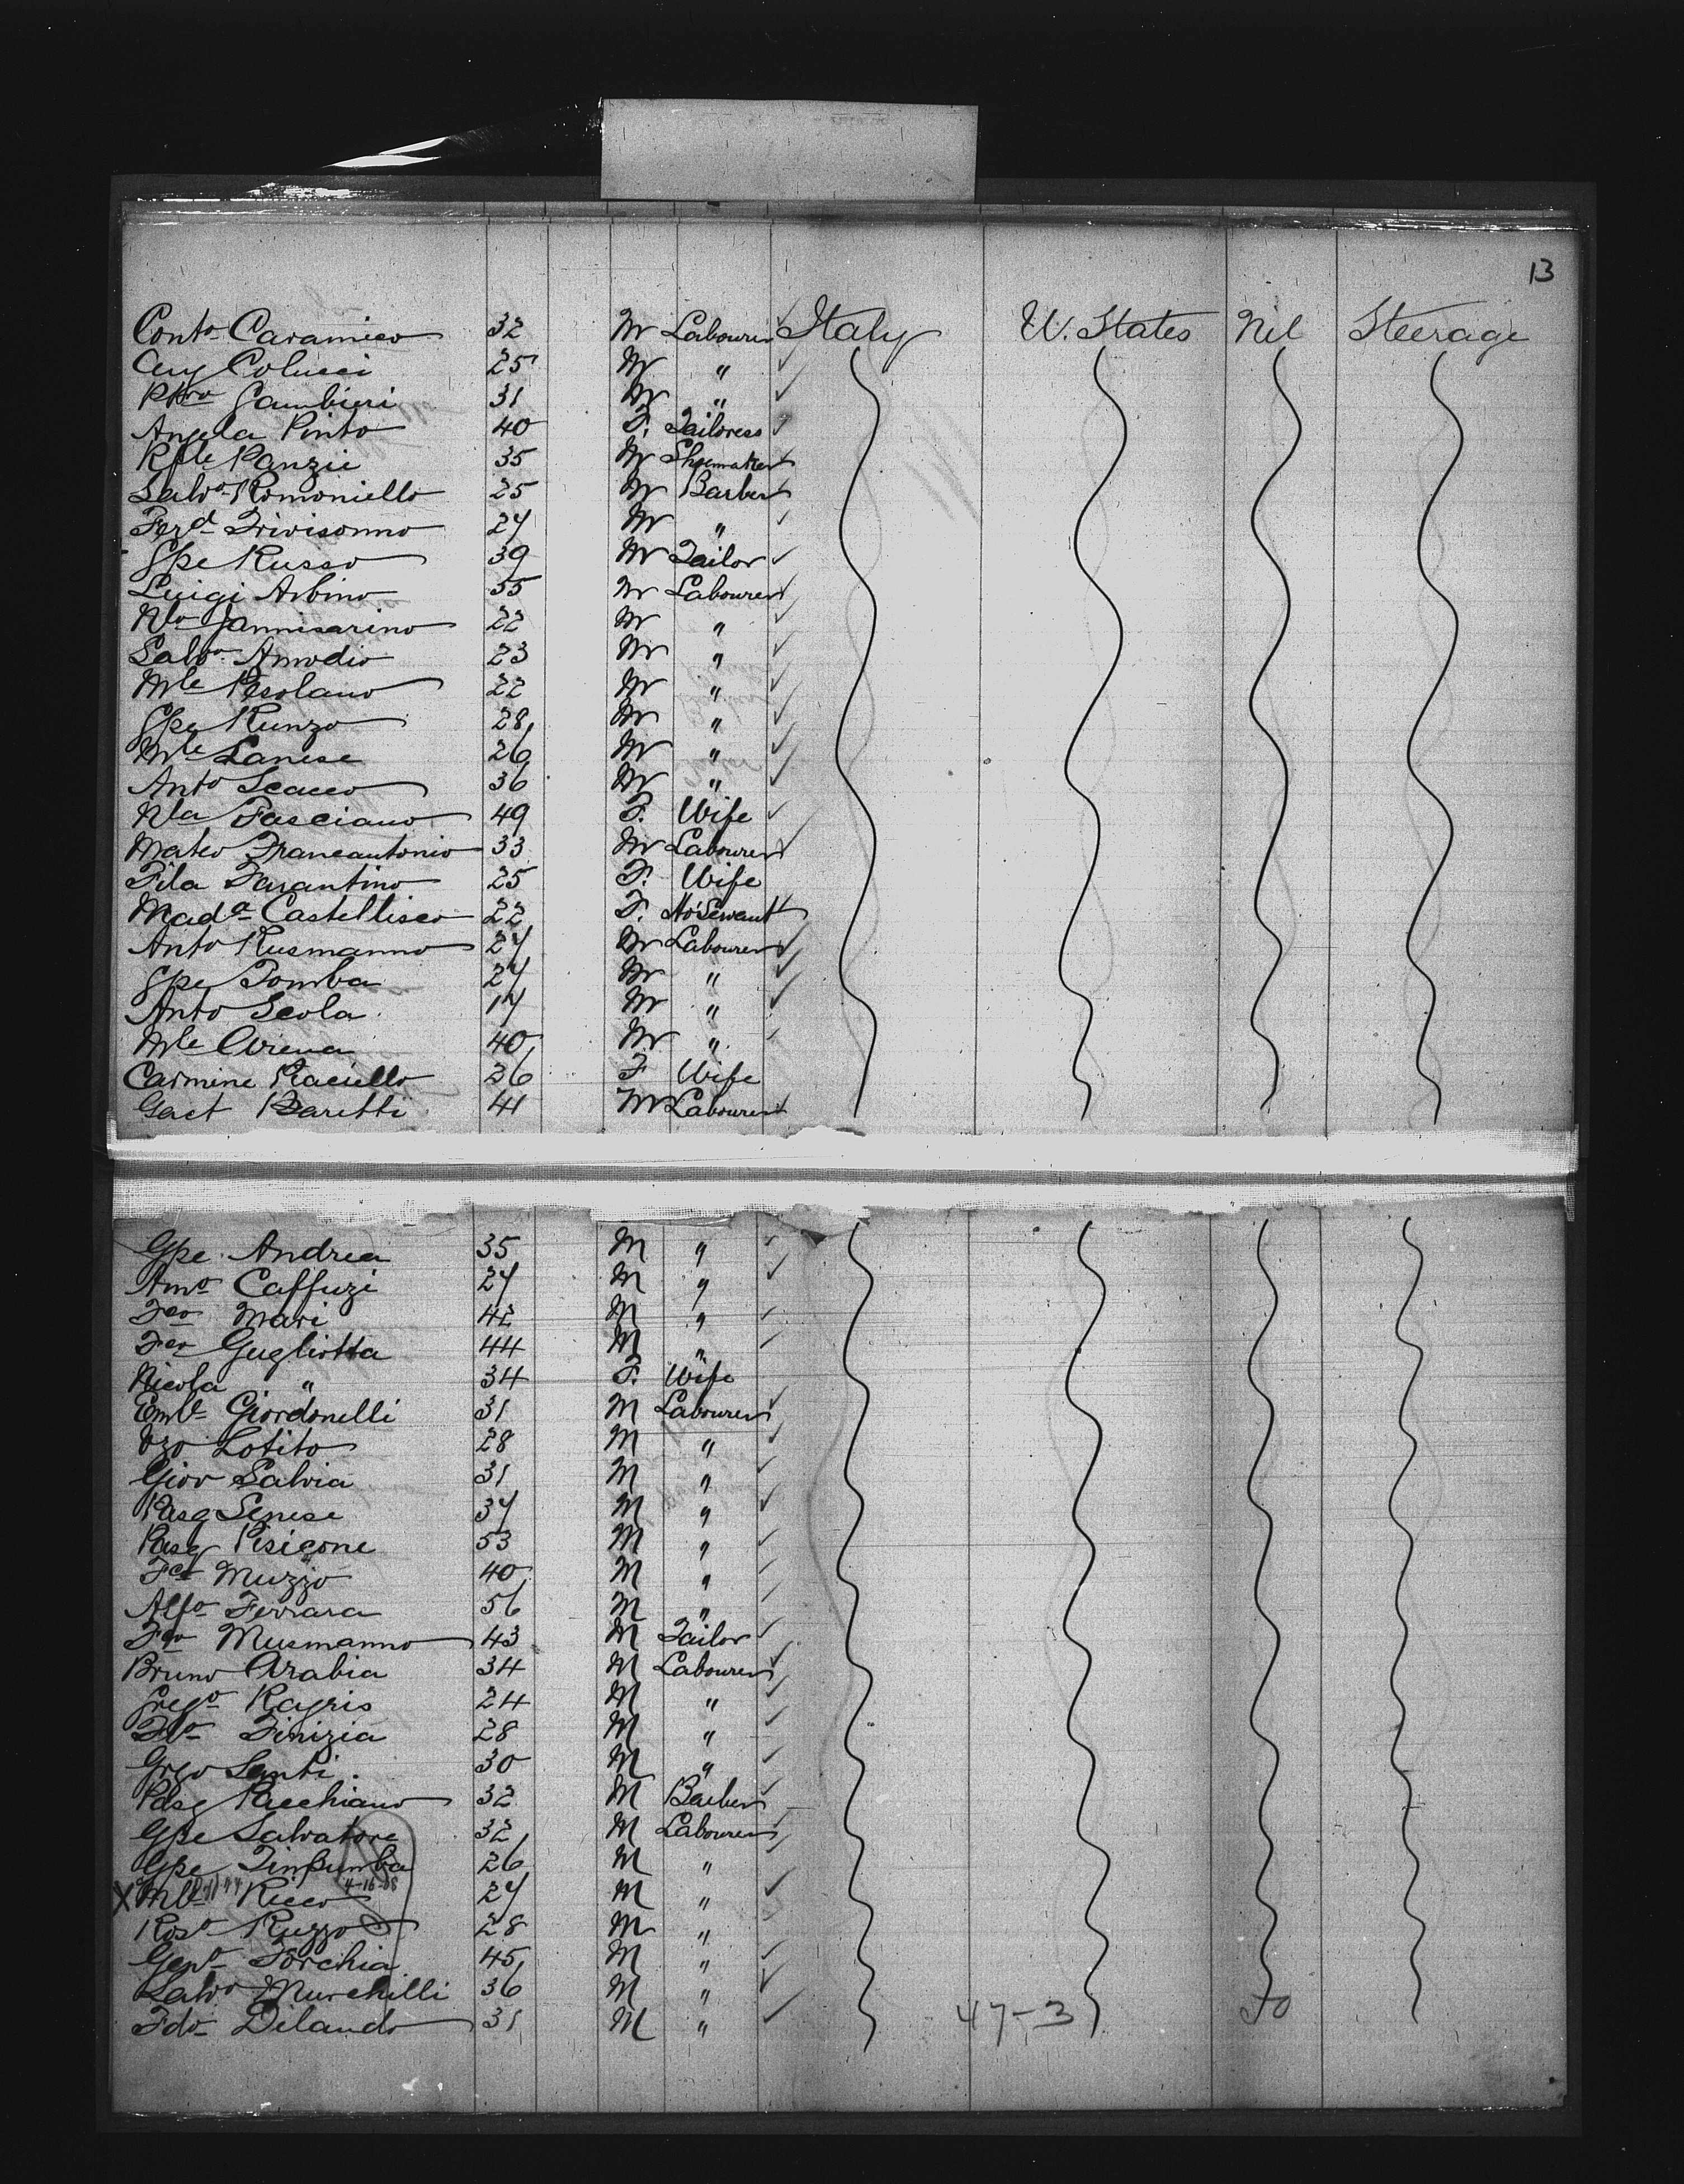 13
Conto Caramico 32 M Labourer Italy U. States Nil Steerage
Aug Colucci 25 M "
Ptro Gambieri 31 M "
Angela Pinto 40 F. Tailoress
Rfle Panzie 35 M Shoemaker
Salvo Romoniello 25 M Barber
Ferd Trivisonno 27 M "
Gpe Russo 39 M Tailor
Luigi Arbino 55 M Labourer
Nlo Jannisarino 22 M "
Salvo Amodio 23 M "
Mle Pesolano 22 M "
Gpe Runzo 28 M "
Mle Lanese 26 M "
Anto Scacco 36 M "
Nla Fasciano 49 F. Wife
Mateo Francantonio 33 M Labourer
Fila Tarantino 25 F. Wife
Mada Castellisco 22 F. Ho Servant
Anto Rusmanno 27 M Labourer
Gpe Tomba 27 M "
Anto Scola 17 M "
Mle Arena 40 M "
Carmine Raciello 26 F Wife
Gaet Baretti 41 M Labourer
Gpe Andrea 35 M "
Amo Caffuzi 27 M "
Fco Mari 42 M "
Fco Gugliotta 44 M "
Nicola " 34 F. Wife
Emlo Giordonelli 31 M Labourer
Vzo Lotito 28 M "
Giov Salvia 31 M "
Pasq Senese 37 M "
Pasq Pisicone 53 M "
Fco Muzzo 40 M "
Alfo Ferrara 56 M "
Fco Musmanno 43 M Tailor
Bruno Arabia 34 M Labourer
Grego Ragris 24 M "
Flo Finizia 28 M "
Grgo Senti 30 M "
Pasq Pacchiano 32 M Barber
Gpe Salvatore 32 M Labourer
Gpe Timpumba 26 M "
4-16-08
X Mle Ricco 27 M "
Roso Ruzzo 28 M "
Geno Torchia 45 M "
Salvo Murchilli 36 M "
Fdo Dilando 31 M "
47-3